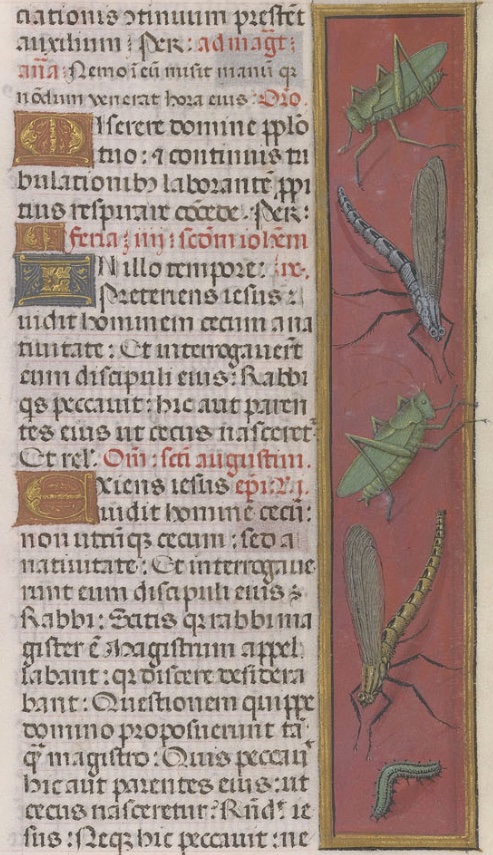 ciationis ꝯtinuum prestēt
auxilium : Per : ad magt̄ :
aña : Nemo ī eū misit manū qꝛ
nōdum venerat hora eius : Orō.
Miserere domine pplō
tuo : ⁊ continuis tri
bulationibꝫ laborantē ppi
tius respirare cōcede . Per :
feria : iiij : scd̄m iohēm
IN illo tempore : ie .
Preteriens iesus :
uidit hominem cecum a na
tiuitate : Et interrogauerūt
eum discipuli eius : Rabbi
qs peccauit : hic aut paren
tes eius ut cecus nasceret᷑
Et rel . Om̄ : scti augustini .
Exiens iesus epi : R . j .
uidit hominē cecū :
non utcūqꝫ cecum : sed a
natiuitate : Et interrogaue
runt eum discipuli eius :
Rabbi : Scitis qꝛ rabbi ma
gister ē Magistrum appel
labant : qꝛ discere desidera
bant : Questionem quippe
domino proposuerunt tā
qᷓ magistro : Quis peccauit
hic aut parentes eius : ut
cecus nasceretur : Rn̄d᷑ ie
sus : Neqꝫ hic peccauit : ne